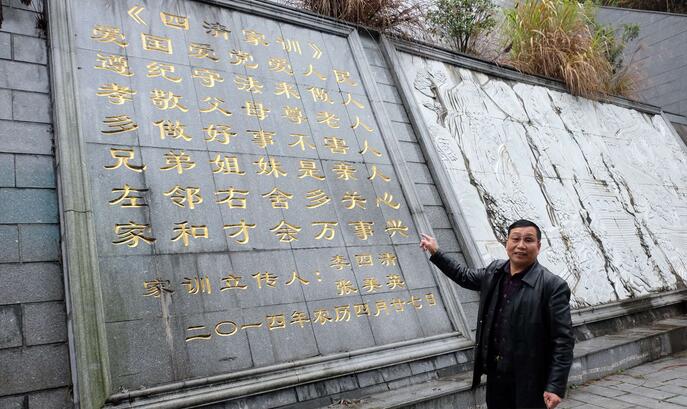 《四清家训》
爱国爱党爱人民
遵纪守法来做人
孝敬父母尊老人
多做好事不害人
兄弟姐妹是亲人
左邻右舍多关心
家和才会万事兴
家训立传人：李四清
张美英
二〇一四年农历四月廿七日